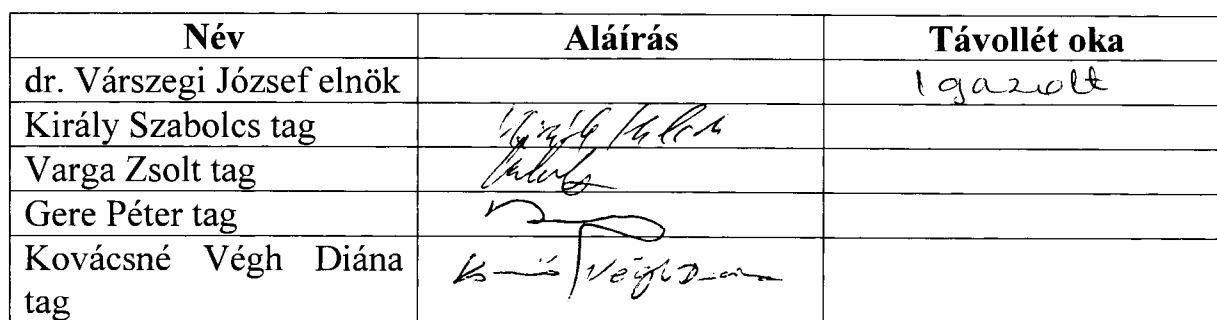 Név Aláírás Távollét oka
dr. Várszegi József elnök Igazolt
Király Szabolcs tag
Varga Zsolt tag
Gere Péter tag
Kovácsné Végh Diána Végh
tag